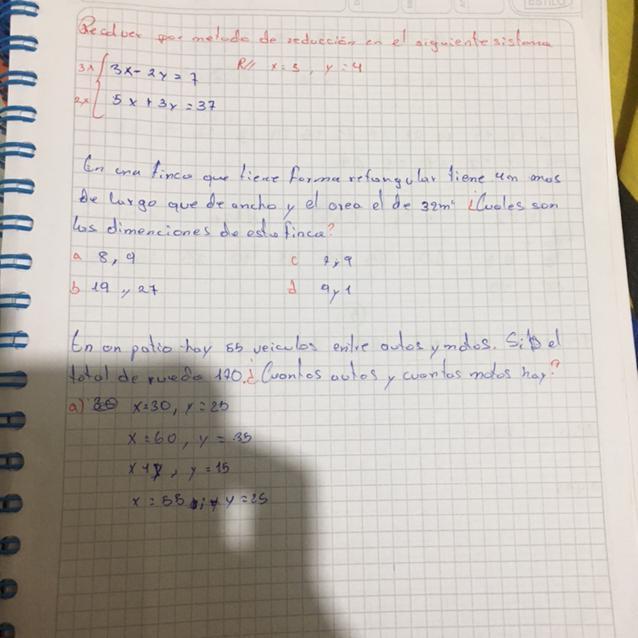 Resolver por metodo de reducción en el siguiente sistema
3x 3x - 2y = 7 R// x = 5, y = 4
2x 5x + 3y = 37
En una finca que tiene forma retangular tiene 4m mas
de largo que de ancho y el area el de 32m² ¿Cuales son
las dimenciones de esta finca?
a 8, 9 c
b 19 y 27 d 9 y 1
En on patio hay 55 veiculos entre autos y motos. Si el
total de rueda 170. ¿Cuantos autos y cuantos motos hay?
a) x=30, y=25
x=60, y=35
y=15
x=55 y=25